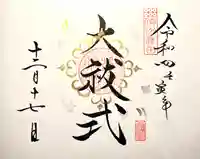 令和四壬寅年
大祓式
十二月十七日